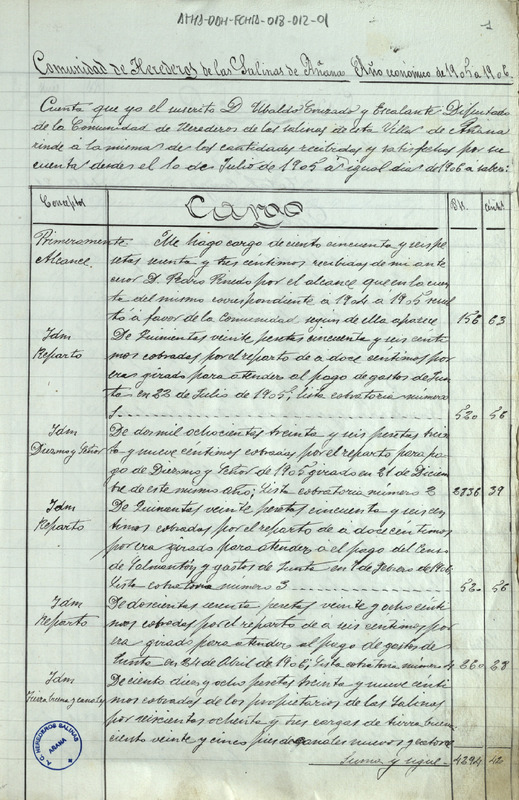 AHHA-DDH-FCHA-013-012-01
1
Comunidad de Herederos de las Salinas de Añana Año económico de 1905 a 1906
Cuenta que yo el suscrito D. Ubaldo Cruzado y Escalante Diputado
de la Comunidad de Herederos de las salinas de esta Villa de Añana
rinde á la misma de las cantidades recibidas y satisfechas por su
cuenta desde el 1º de Julio de 1905 á igual dia de 1906 á saber:
Conceptos Cargo Pts. Cénts.
Primeramente Me hago cargo de ciento cincuenta y seis pe
Alcance setas sesenta y tres céntimos recibidas de mi ante
cesor D. Pedro Pinedo por el alcance que en la cuen
ta del mismo correspondiente a 1904 á 1905 resul
tó á favor de la Comunidad según de ella aparece 156 63
Idm De Quinientas veinte pesetas cincuenta y seis cénti
Reparto mos cobradas por el reparto de a doce céntimos por
era girado para atender al pago de gastos de Jun
ta en 22 de Julio de 1905; Lista cobratoria número
1 520 56
Idm De dos mil ochocientas treinta y seis pesetas trein
Diezmo y Señor ta y nueve céntimos cobradas por el reparto para pa
go de Diezmo y Señor de 1905 girado en 21 de Diciem
bre de este mismo año; Lista cobratoria número 2 2836 39
Idm De Quinientas veinte pesetas cincuenta y seis cén
Reparto timos cobradas por el reparto de á doce céntimos
por era girado para atender al pago del Censo
de y gastos de Junta en 1º de Febrero de 1906
Lista cobratoria número 3 520 56
Idm De doscientas sesenta pesetas veinte y ocho cénti
Reparto mos cobradas por el reparto de a seis céntimos por
era girado para atender al pago de gastos de
Junta en 24 de Abril de 1906; Lista cobratoria número 4 260 28
Idm De ciento diez y ocho pesetas treinta y nueve cénti
Tierra buena y canales mos cobradas de los propietarios de las Salinas
por seiscientos ochenta y tres cargas de tierra buena
ciento veinte y cinco pies de canales nuevos y catorce
Suma y sigue 4294 42
A.C. HEREDEROS SALINAS
AÑANA